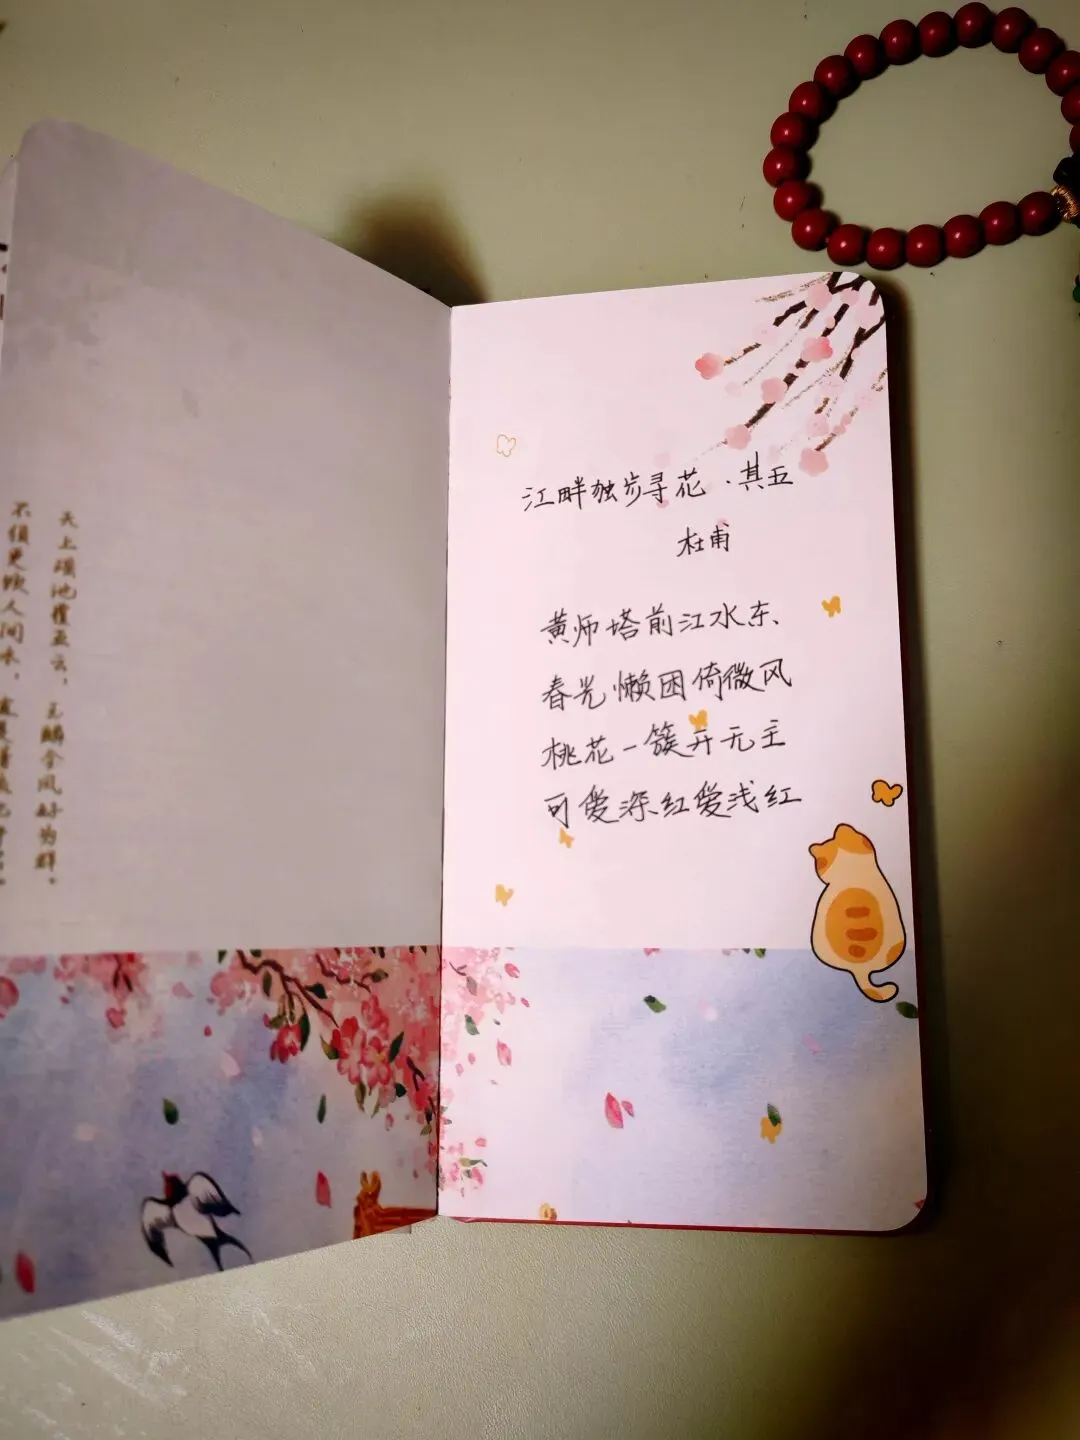 江畔独步寻花·其五
杜甫
黄师塔前江水东、
春光懒困倚微风
桃花一簇开无主
可爱深红爱浅红
天上瑶池覆五云，玉麟金凤好为群。
不须更饮人间水，